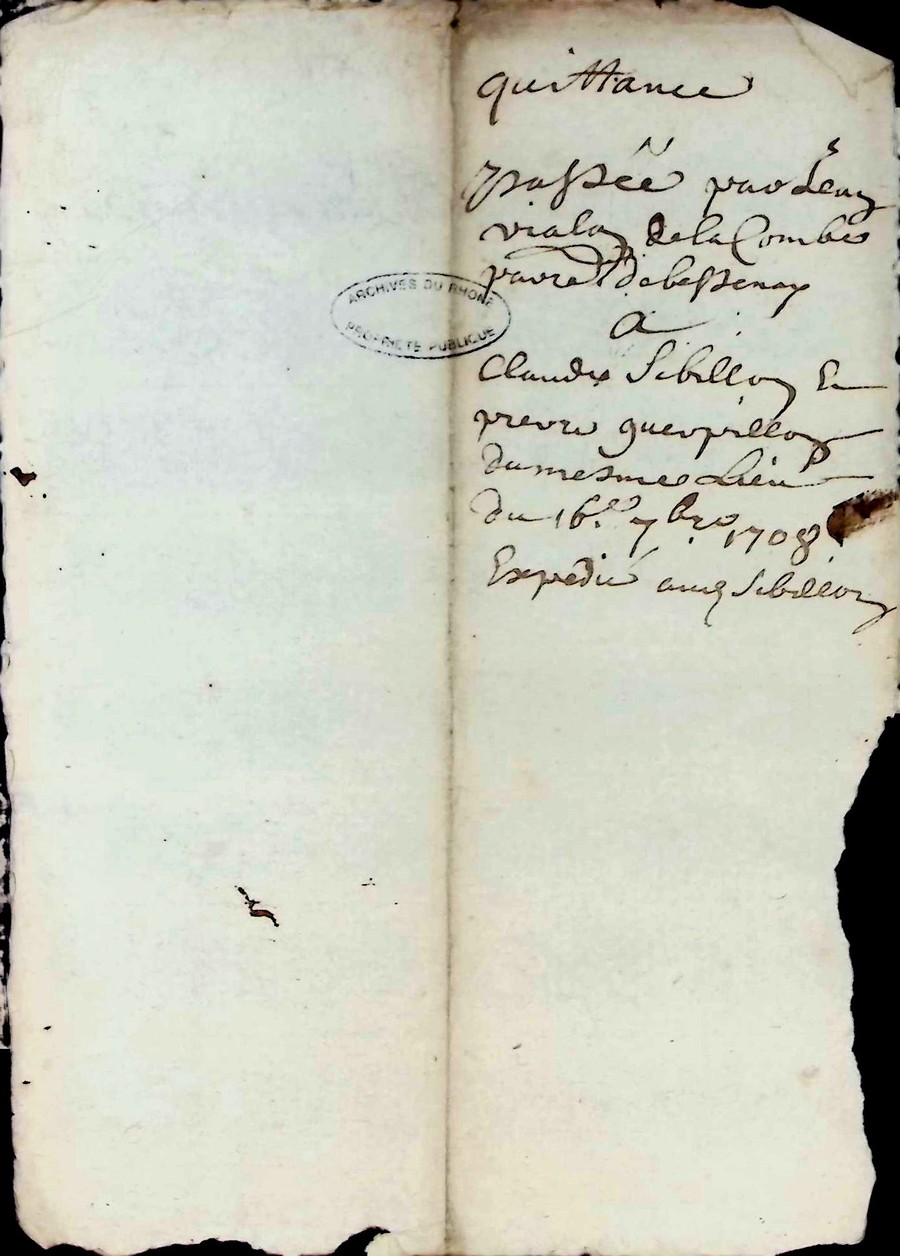 quittance
passée par Jean
vialon de la Combe
parre. de bessenay
a
Claude Sibillon Et
pierre guerpillon
du mesme Lieu
du 16.e 7bre 1708
Expedié aud Sibillon
ARCHIVES DU RHONE
PROPRIETE PUBLIQUE